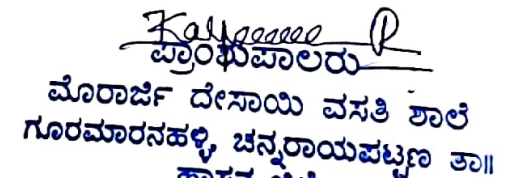 ಪ್ರಾಂಶುಪಾಲರು
ಮೊರಾರ್ಜಿ ದೇಸಾಯಿ ವಸತಿ ಶಾಲೆ
ಗೂರಮಾರನಹಳ್ಳಿ, ಚನ್ನರಾಯಪಟ್ಟಣ ತಾ||